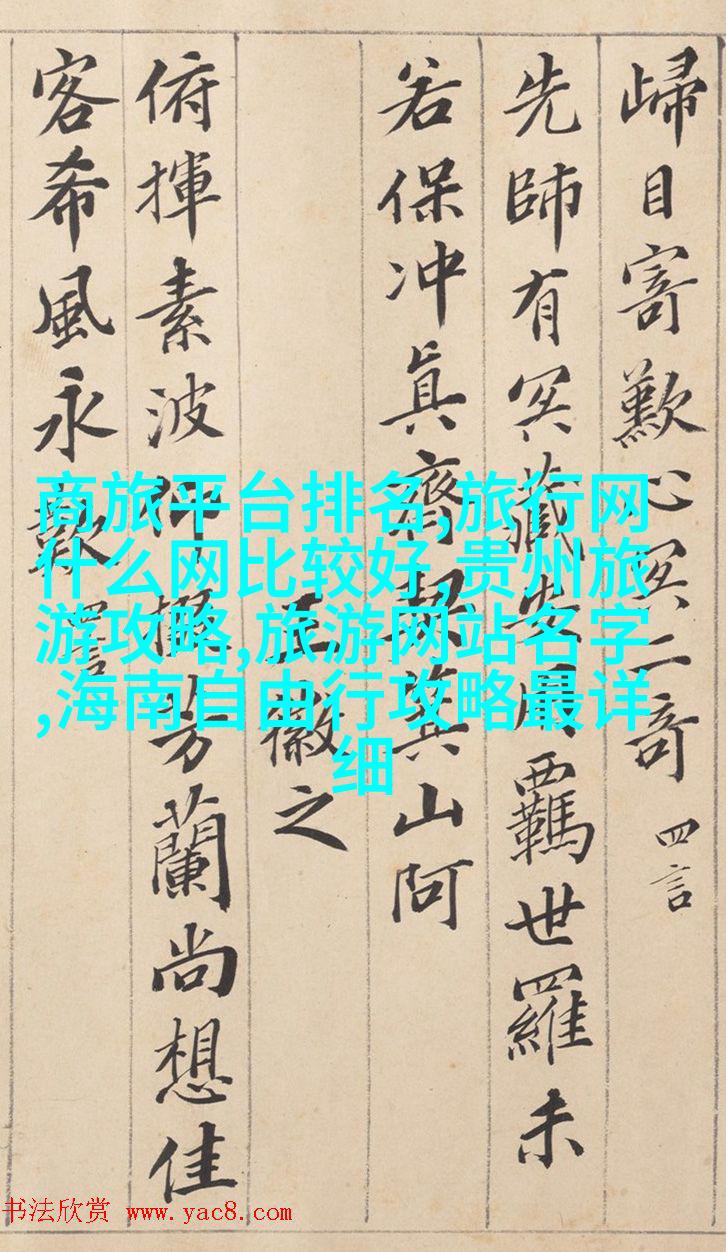 歸目寄歎心冥二奇 四言
先師有冥藏安用羈世羅未
若保冲真齊契箕山阿
王徽之
俯揮素波仰掇芳蘭尚想佳
客希風永歎
商旅平台排名,旅行网
什么网比较好,贵州旅
游攻略,旅游网站名字
,海南自由行攻略最详
细
书法欣赏 www.yac8.com